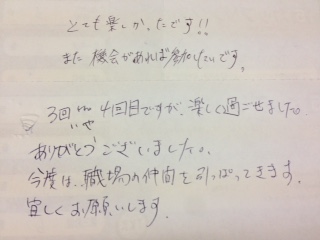 とても楽しかったです!!
また機会があれば参加したいです。
3回 いや 4回目ですが、楽しく過ごせました。
ありがとうございました。
今度は、職場の仲間を引っぱってきます。
宜しくお願いします。